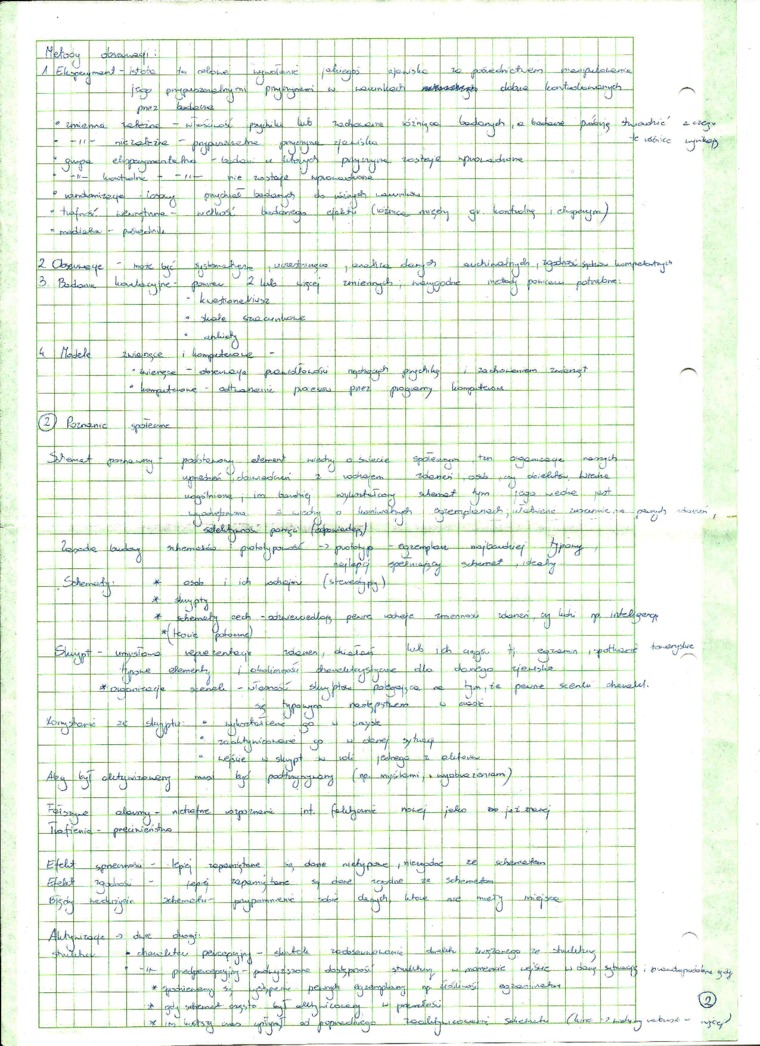 Metody obserwacji:
1. Eksperyment - istota to celowe wywołanie jakiegoś zjawiska za pośrednictwem manipulowania
jego przypuszczalnymi przyczynami w warunkach dobrze kontrolowanych
przez badacza
• zmienna zależna - właściwość psychiki lub zachowania różniąca badanych, a badacz próbuje stwierdzić z czego
te różnice wynikają
• -||- niezależna - przypuszczalna przyczyna zjawiska
• grupa eksperymentalna - badani u których przyczyna zostaje wprowadzona
• -||- kontrolna - -||- nie zostaje wprowadzona
• randomizacja losowy przydział badanych do różnych warunków
• trafność wewnętrzna - wielkość badanego efektu (różnica między gr. kontrolną i eksperym)
• mediator - pośrednik
2. Obserwacja - może być systematyczna, uczestnicząca, analiza danych archiwalnych, zgodność sędziów kompetentnych
3. Badania korelacyjne - pomiar 2 lub więcej zmiennych, metody pomiaru potrzebne:
• kwestionariusz
• skale szacunkowe
• ankiety
4. Modele zwierzęce i komputerowe -
• zwierzęce - obserwacja prawidłowości rządzących psychiką i zachowaniem zwierząt
• komputerowe - odtwarzanie procesów przez programy komputerowe
② Poznanie społeczne
Schemat poznawczy - podstawowy element wiedzy o świecie społecznym, ten organizacja naszych
uprzednich doświadczeń z rodzajem zdarzeń, osób, czy obiektów. Wiedza
uogólniona, im bardziej wykształcony schemat tym jego wiedza jest
z wiedzy o konkretnych egzemplarzach, pewnych zdarzeń,
selektywność pamięci
Zasada budowy schematów prototypowość -> prototyp - egzemplarz najbardziej typowy,
najlepiej spełniający schemat, idealny
Schematy: * osób i ich rodzajów (stereotypy)
* skrypty
* schematy cech - odzwierciedlają pewne rodzaje zmienności zdarzeń czy ludzi np. inteligencja
*(teorie potoczne)
Skrypt - umysłowa reprezentacja zdarzeń, działań lub ich ciągu tj. egzamin, spotkanie towarzyskie
typowe elementy i okoliczności charakterystyczne dla danego zjawiska
* organizacja scenek - własność skryptów polegająca na tym, że pewne scenki charakt.
są typowym następstwem w czasie
Korzystanie ze skryptu: • wykształcenie go w umyśle
• zaaktywizowanie go w danej sytuacji
• wejście w skrypt w roli jednego z aktorów
Aby był aktywizowany musi być podtrzymywany (np. myślami, wyobrażeniem)
Fałszywe alarmy - nietrafne rozpoznanie inf. faktycznie nowej jako już znanej
Trafienie - przeciwieństwo
Efekt sprzeczności - lepiej zapamiętane są dane nietypowe, niezgodne ze schematem
Efekt zgodności - lepiej zapamiętane są dane zgodne ze schematem
Błędy nadużycia schematu - przypomnienie sobie danych które nie miały miejsca
Aktywizacja -> dwie drogi:
struktur • charakter percepcyjny - skutek zaobserwowania danych związanego ze strukturą
• -||- przedpercepcyjny - podwyższona dostępność struktury w momencie wejścia w daną sytuację i prawdopodobne gdy
* spodziewamy się wystąpienia pewnych egzemplarzy np. złośliwość egzaminatora
* gdy schemat często był aktywizowany w przeszłości
* im krótszy czas upłynął od poprzedniego zaaktywizowania schematu
②